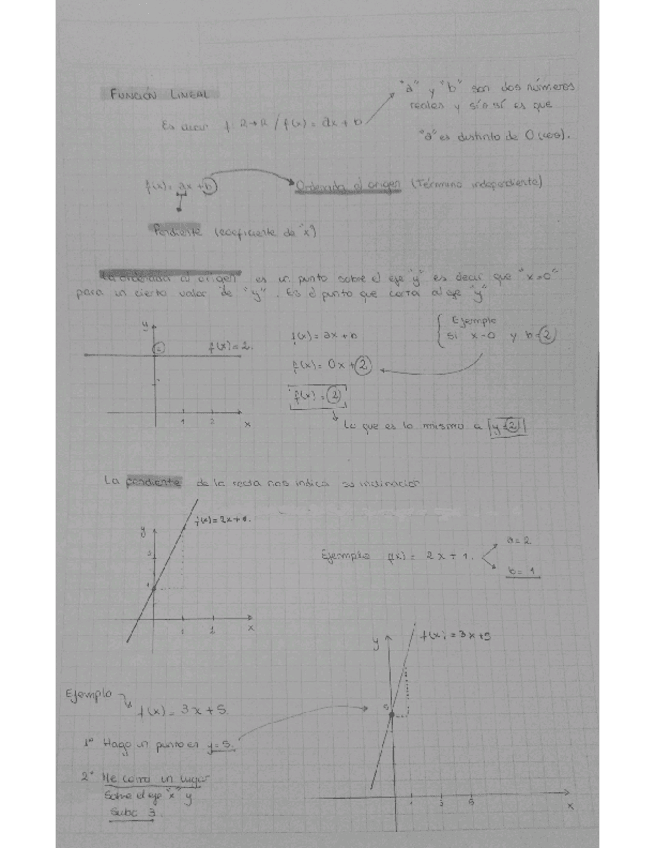 FUNCIÓN LINEAL
"a" y "b" son dos números
reales y sío sí es que
"a" es distinto de 0 (cero).
Es decir f: R→R / f(x) = ax + b
f(x) = ax + b
Ordenada al origen (Término independiente)
Pendiente (coeficiente de "x")
La ordenada al origen es un punto sobre el eje "y" es decir que "x=0"
para un cierto valor de "y". Es el punto que corta al eje "y"
y
f(x) = 2.
1 2 x
f(x) = ax + b
f(x) = 0x + 2
f(x) = 2
Ejemplo
si x=0 y b=2
Lo que es lo mismo a y=2
La pendiente de la recta nos indica su inclinación
y
f(x) = 2x + 1.
1 2 x
Ejemplo f(x) = 2x + 1.
a = 2
b = 1
y
f(x) = 3x + 5
5
x
Ejemplo
f(x) = 3x + 5
1° Hago un punto en y=5.
2° Me corro un lugar
Sobre el eje "x" y
Subo 3